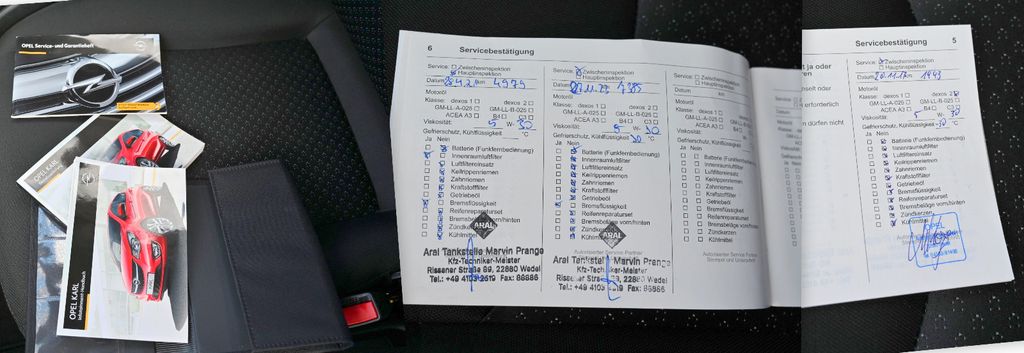 OPEL Service- und Garantieheft
OPEL KARL
OPEL KARL
Infotainment-Handbuch
6 Servicebestätigung
Service: Zwischeninspektion
Hauptinspektion
Datum km 4979
Motoröl
Klasse: dexos 1 dexos 2
GM-LL-A-025 GM-LL-B-025
ACEA A3 B4 C3
Viskosität: 5 W- 30
Gefrierschutz, Kühlflüssigkeit °C
Ja Nein
Batterie (Funkfernbedienung)
Innenraumluftfilter
Luftfiltereinsatz
Keilrippenriemen
Zahnriemen
Kraftstofffilter
Getriebeöl
Bremsflüssigkeit
Reifenreparaturset
Bremsbeläge vorn/hinten
Zündkerzen
Kühlmittel
ARAL
Aral Tankstelle Marvin Prange
Kfz-Techniker-Meister
Rissener Straße 89, 22880 Wedel
Service: Zwischeninspektion
Hauptinspektion
Datum 7385
Motoröl
Klasse: dexos 1 dexos 2
GM-LL-A-025 GM-LL-B-025
ACEA A3 B4 C3
Viskosität: 5 W- 30
Gefrierschutz, Kühlflüssigkeit 30 °C
Ja Nein
Batterie (Funkfernbedienung)
Innenraumluftfilter
Luftfiltereinsatz
Keilrippenriemen
Zahnriemen
Kraftstofffilter
Getriebeöl
Bremsflüssigkeit
Reifenreparaturset
Bremsbeläge vorn/hinten
Zündkerzen
Kühlmittel
ARAL
Autorisierter Service Partner
Aral Tankstelle Marvin Prange
Kfz-Techniker-Meister
Rissener Straße 89, 22880 Wedel
Service: Zwischeninspektion
Hauptinspektion
Datum km
Motoröl
Klasse: dexos 1 dexos 2
GM-LL-A-025 GM-LL-B-025
ACEA A3 B4 C3
Viskosität: W-
Gefrierschutz, Kühlflüssigkeit °C
Ja Nein
Batterie (Funkfernbedienung)
Innenraumluftfilter
Luftfiltereinsatz
Keilrippenriemen
Zahnriemen
Kraftstofffilter
Getriebeöl
Bremsflüssigkeit
Reifenreparaturset
Bremsbeläge vorn/hinten
Zündkerzen
Kühlmittel
Autorisierter Service Partner
Stempel und Unterschrift
Servicebestätigung 5
Service: Zwischeninspektion
Hauptinspektion
Datum 20.11.17 km 1943
Motoröl
Klasse: dexos 1 dexos 2
GM-LL-A-025 GM-LL-B-025
ACEA A3 B4 C3
Viskosität: 5 W- 30
Gefrierschutz, Kühlflüssigkeit -30 °C
Ja Nein
Batterie (Funkfernbedienung)
Innenraumluftfilter
Luftfiltereinsatz
Keilrippenriemen
Zahnriemen
Kraftstofffilter
Getriebeöl
Bremsflüssigkeit
Reifenreparaturset
Bremsbeläge vorn/hinten
Zündkerzen
Kühlmittel
OPEL